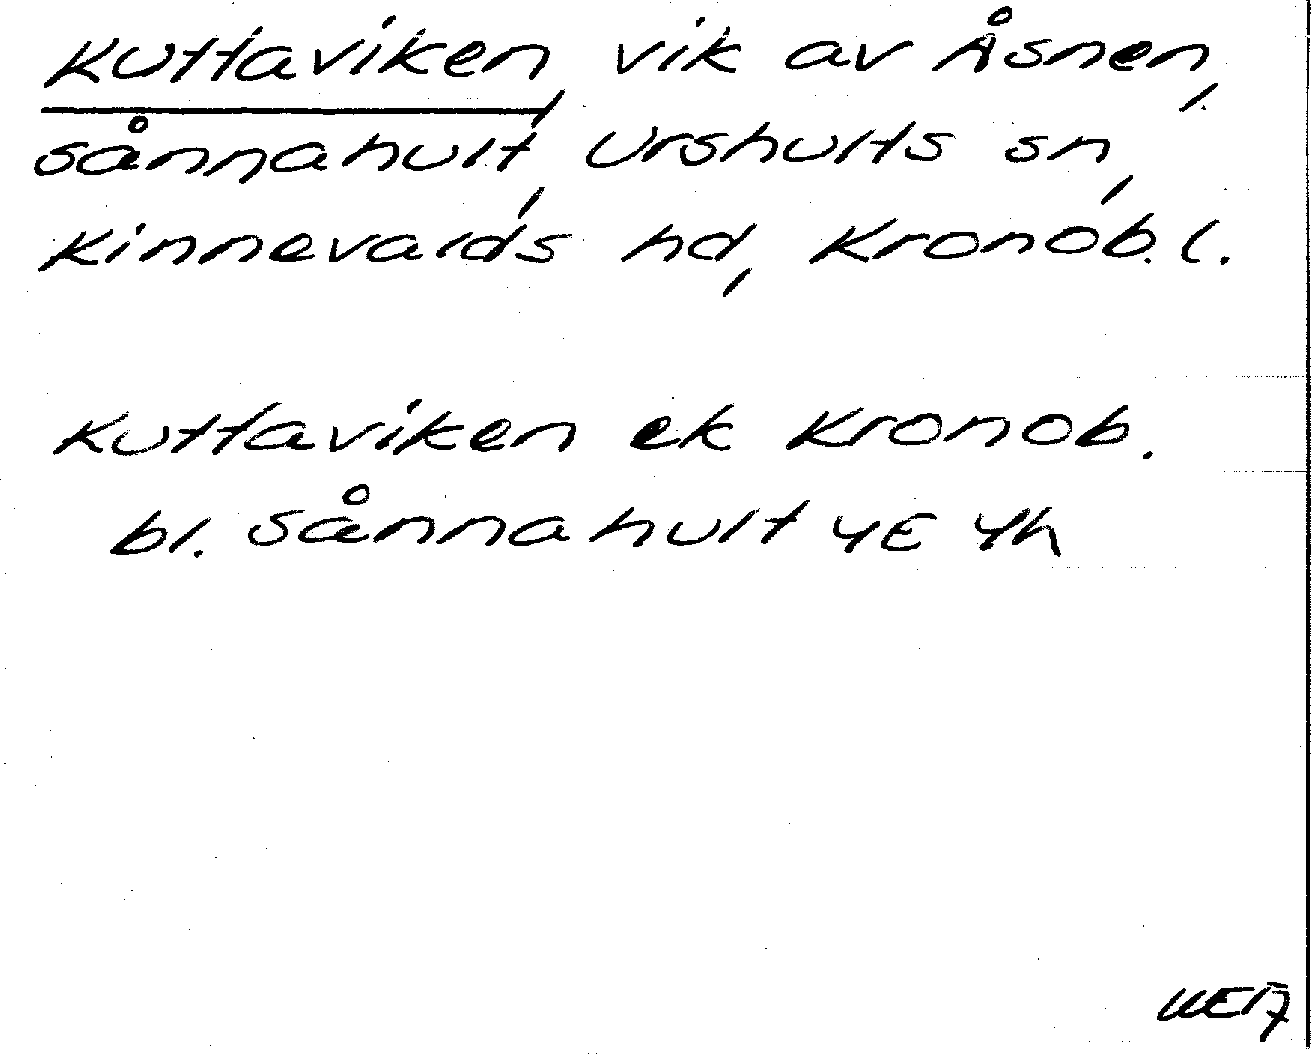 Kuttaviken, vik av Åsnen,
Sånnahult, Urshults sn,
Kinnevalds hd, Kronob. l.
Kuttaviken ek Kronob.
bl. Sånnahult 4E 4h